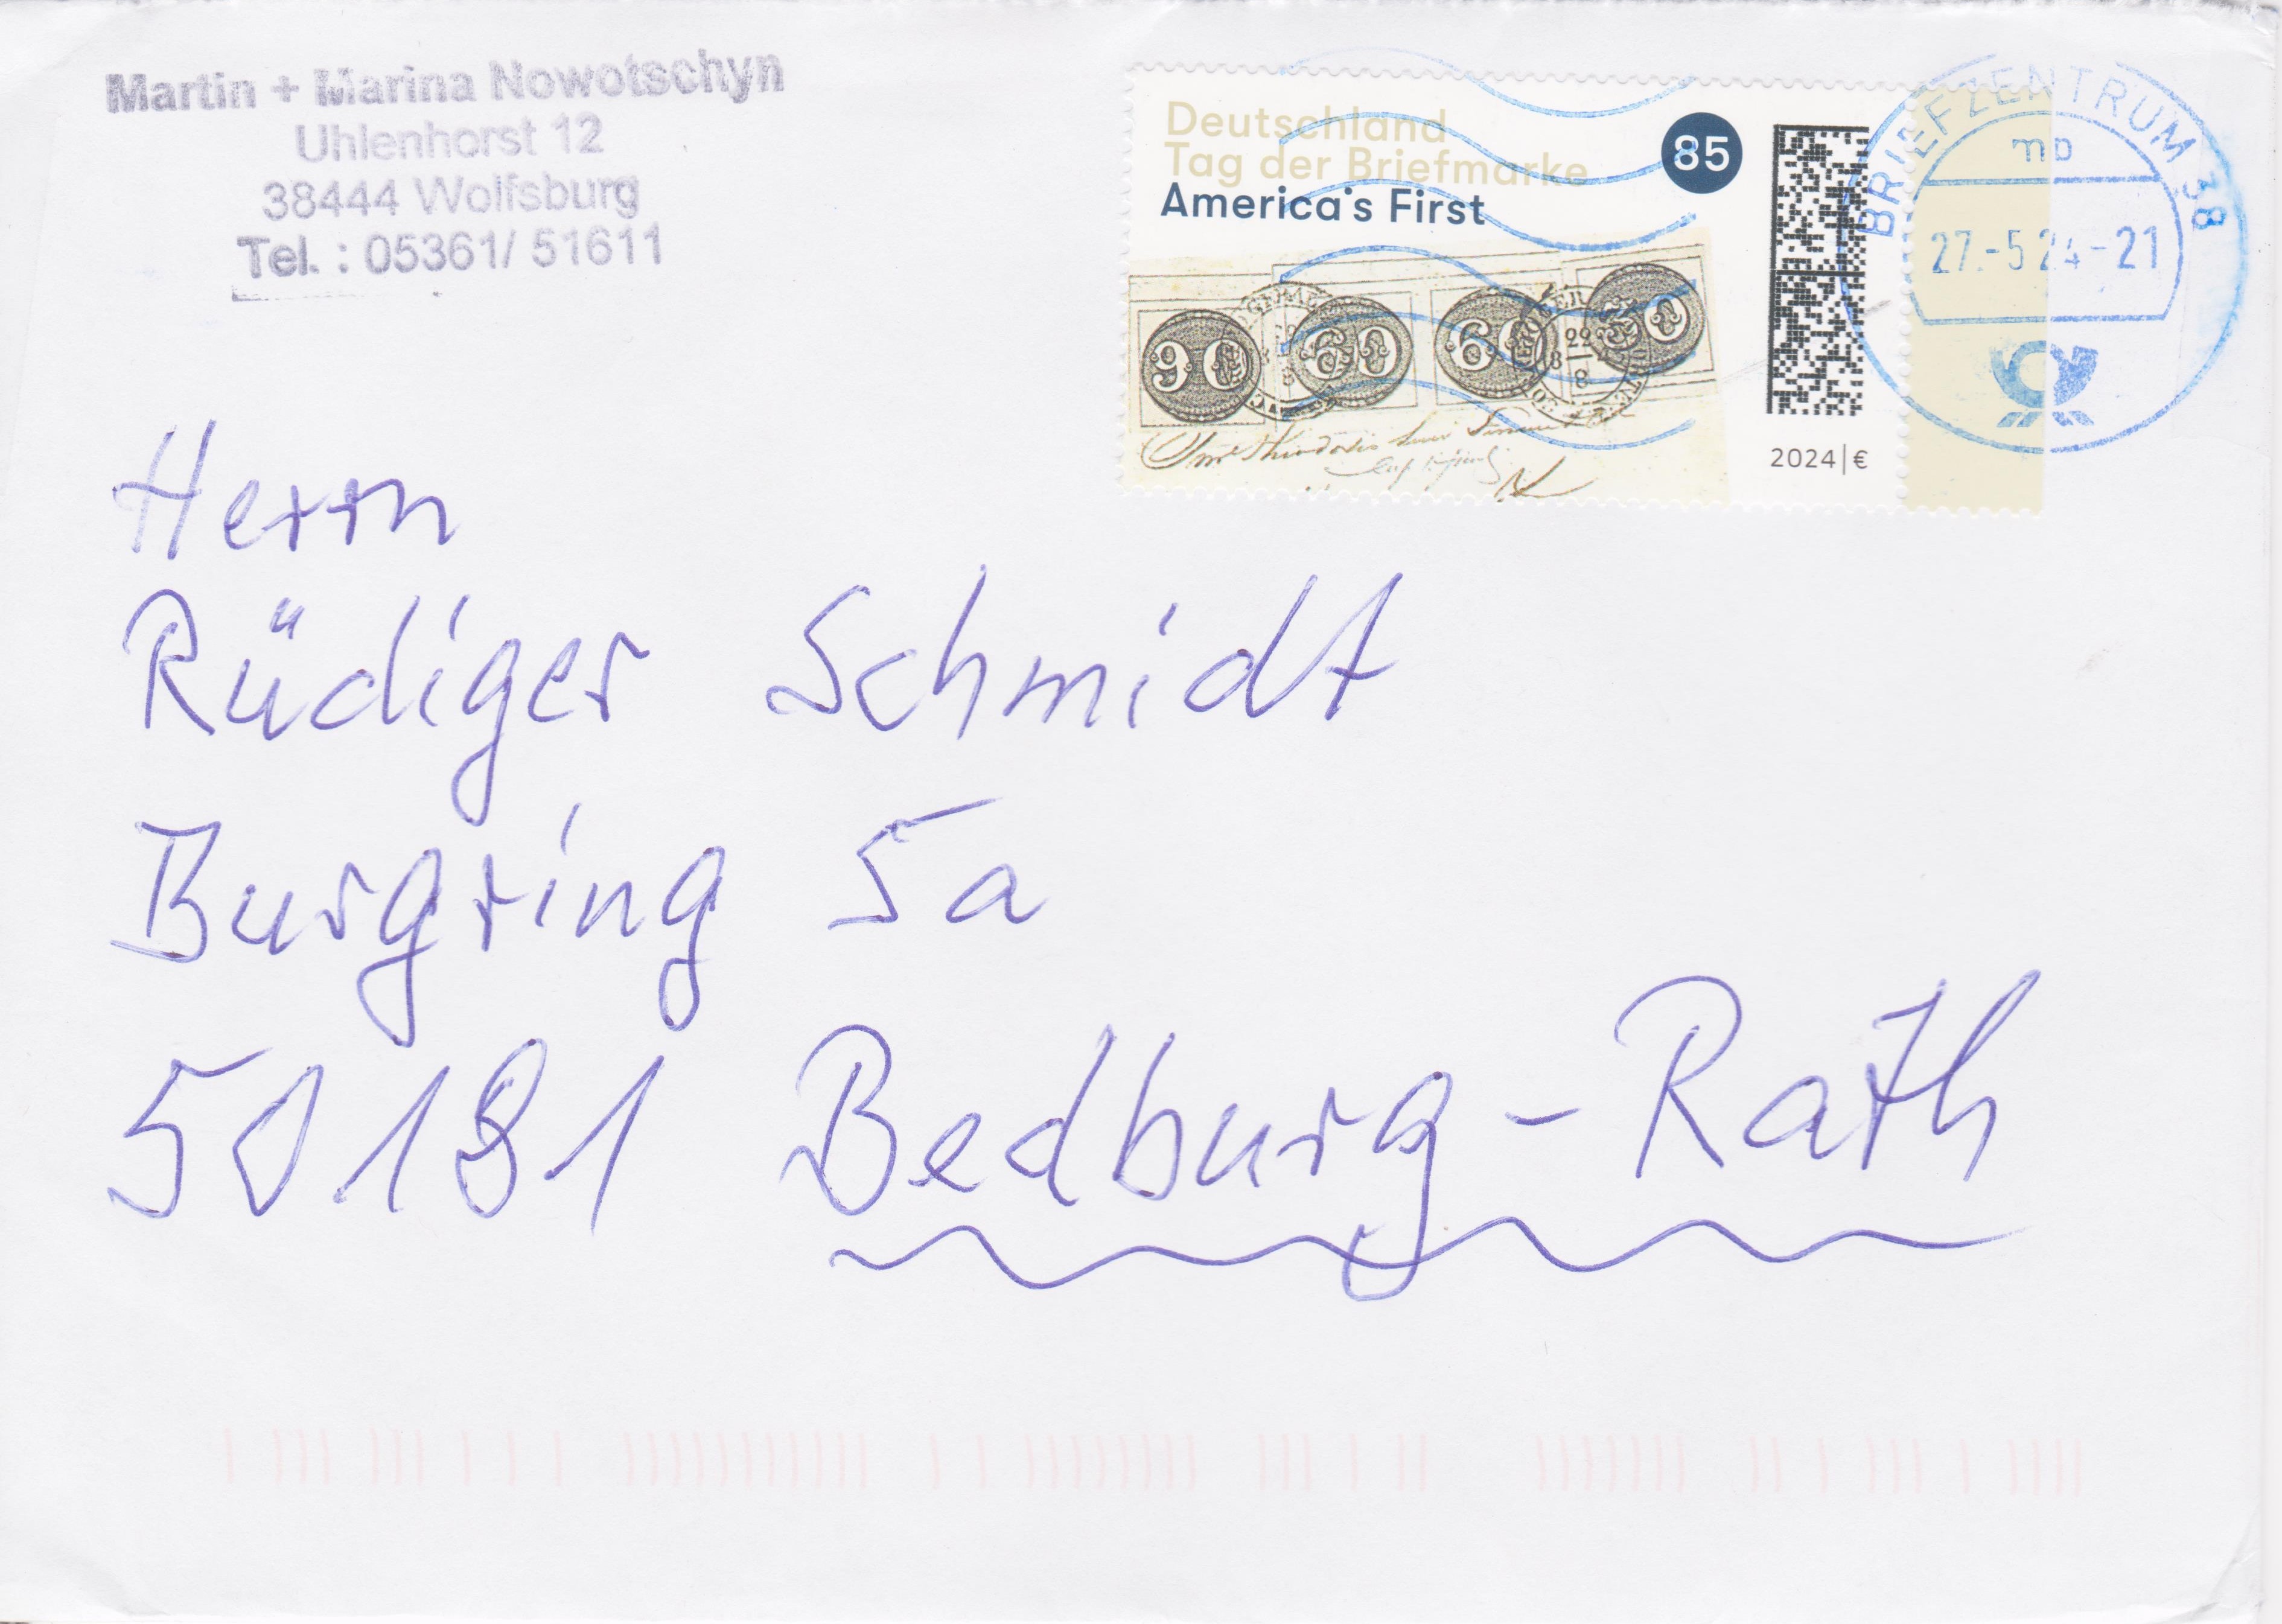 Martin + Marina Nowotschyn
Uhlenhorst 12
38444 Wolfsburg
Tel. : 05361/ 51611
Deutschland
Tag der Briefmarke
America's First
85
90 60 60 30
2024|€
BRIEFZENTRUM 38
mb
27.-5 24-21
Herrn
Rüdiger Schmidt
Burgring 5a
50181 Bedburg-Rath